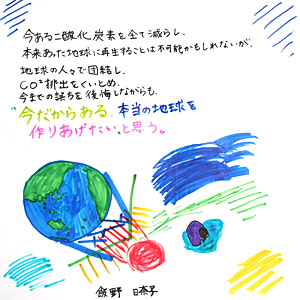 今ある二酸化炭素を全て減らし、
本来あった地球に再生することは不可能かもしれないが、
地球の人々で団結し、
CO²排出をくいとめ、
今までの誤ちを後悔しながらも、
"今だからある、本当の地球を
作りあげたい"と思う。
飯野 日奈子